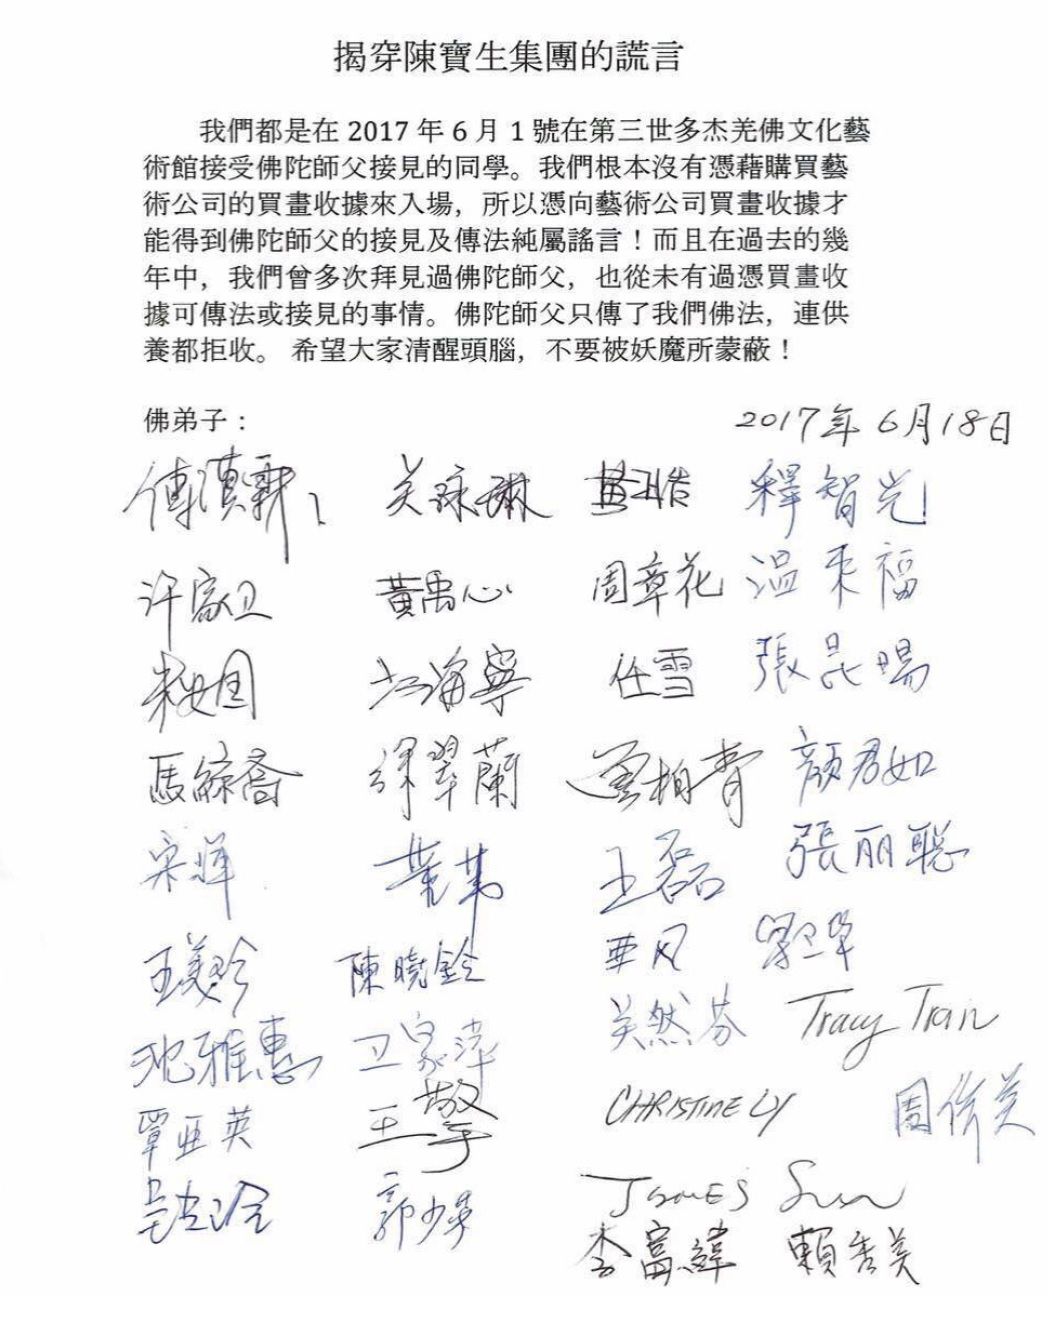 揭穿陳寶生集團的謊言
我們都是在 2017 年 6 月 1 號在第三世多杰羌佛文化藝
術館接受佛陀師父接見的同學。我們根本沒有憑藉購買藝
術公司的買畫收據來入場，所以憑向藝術公司買畫收據才
能得到佛陀師父的接見及傳法純屬謠言！而且在過去的幾
年中，我們曾多次拜見過佛陀師父，也從未有過憑買畫收
據可傳法或接見的事情。佛陀師父只傳了我們佛法，連供
養都拒收。 希望大家清醒頭腦，不要被妖魔所蒙蔽！
佛弟子： 2017年6月18日
关詠琳 釋智光
黃禹心 周章花 温来福
江海寧 任雪 張昆暘
翠蘭 柏青 顏君如
王磊 張丽聪
陳曉鈴
沈雅惠 关然芬 Tracy Tran
覃亜英 王擎 CHRISTINE LY 周俊英
JAMES Sun
李富緯 賴秀美